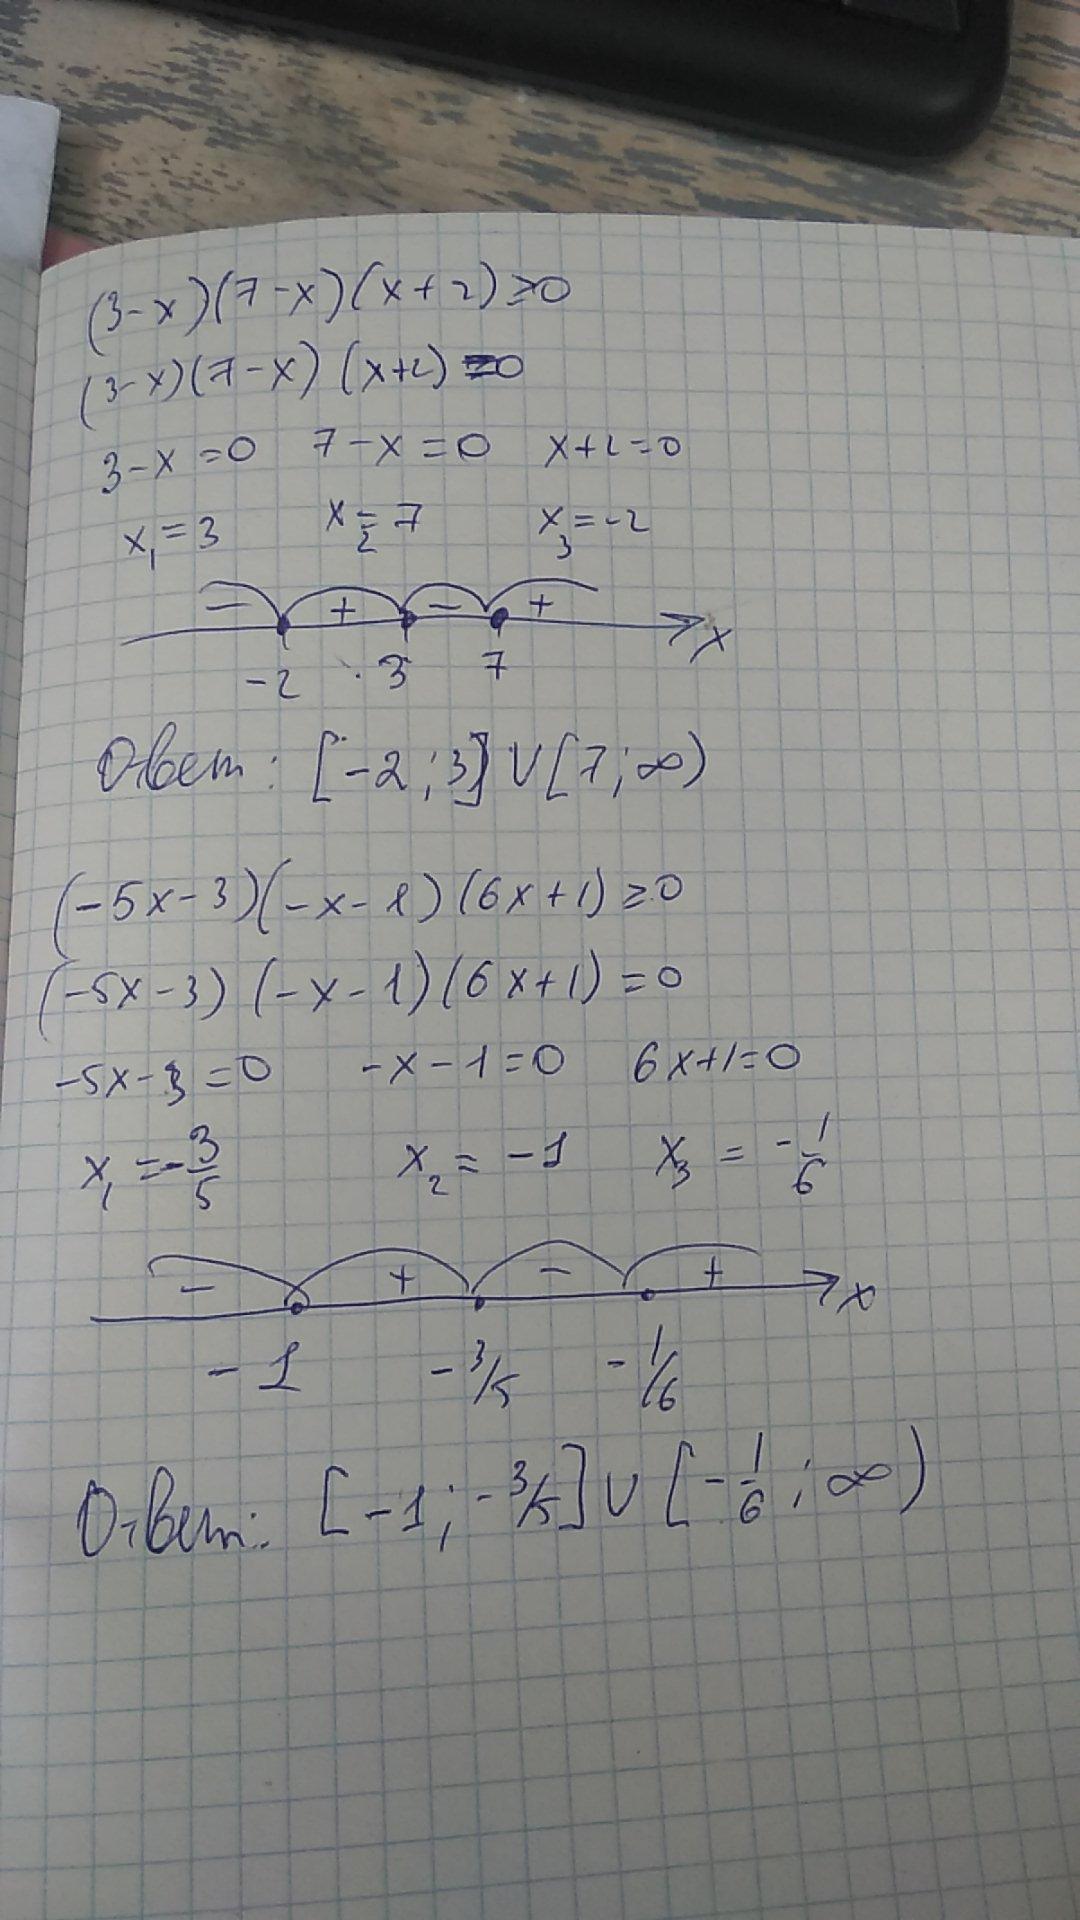 (3-x)(7-x)(x+2)≥0
(3-x)(7-x)(x+2)=0
3-x=0 7-x=0 x+2=0
x₁=3 x₂=7 x₃=-2
- + - +
-2 3 7 x
Ответ: [-2;3]∪[7;∞)
(-5x-3)(-x-1)(6x+1)≥0
(-5x-3)(-x-1)(6x+1)=0
-5x-3=0 -x-1=0 6x+1=0
x₁=-3/5 x₂=-1 x₃=-1/6
- + - + x
-1 -3/5 -1/6
Ответ: [-1;-3/5]∪[-1/6;∞)